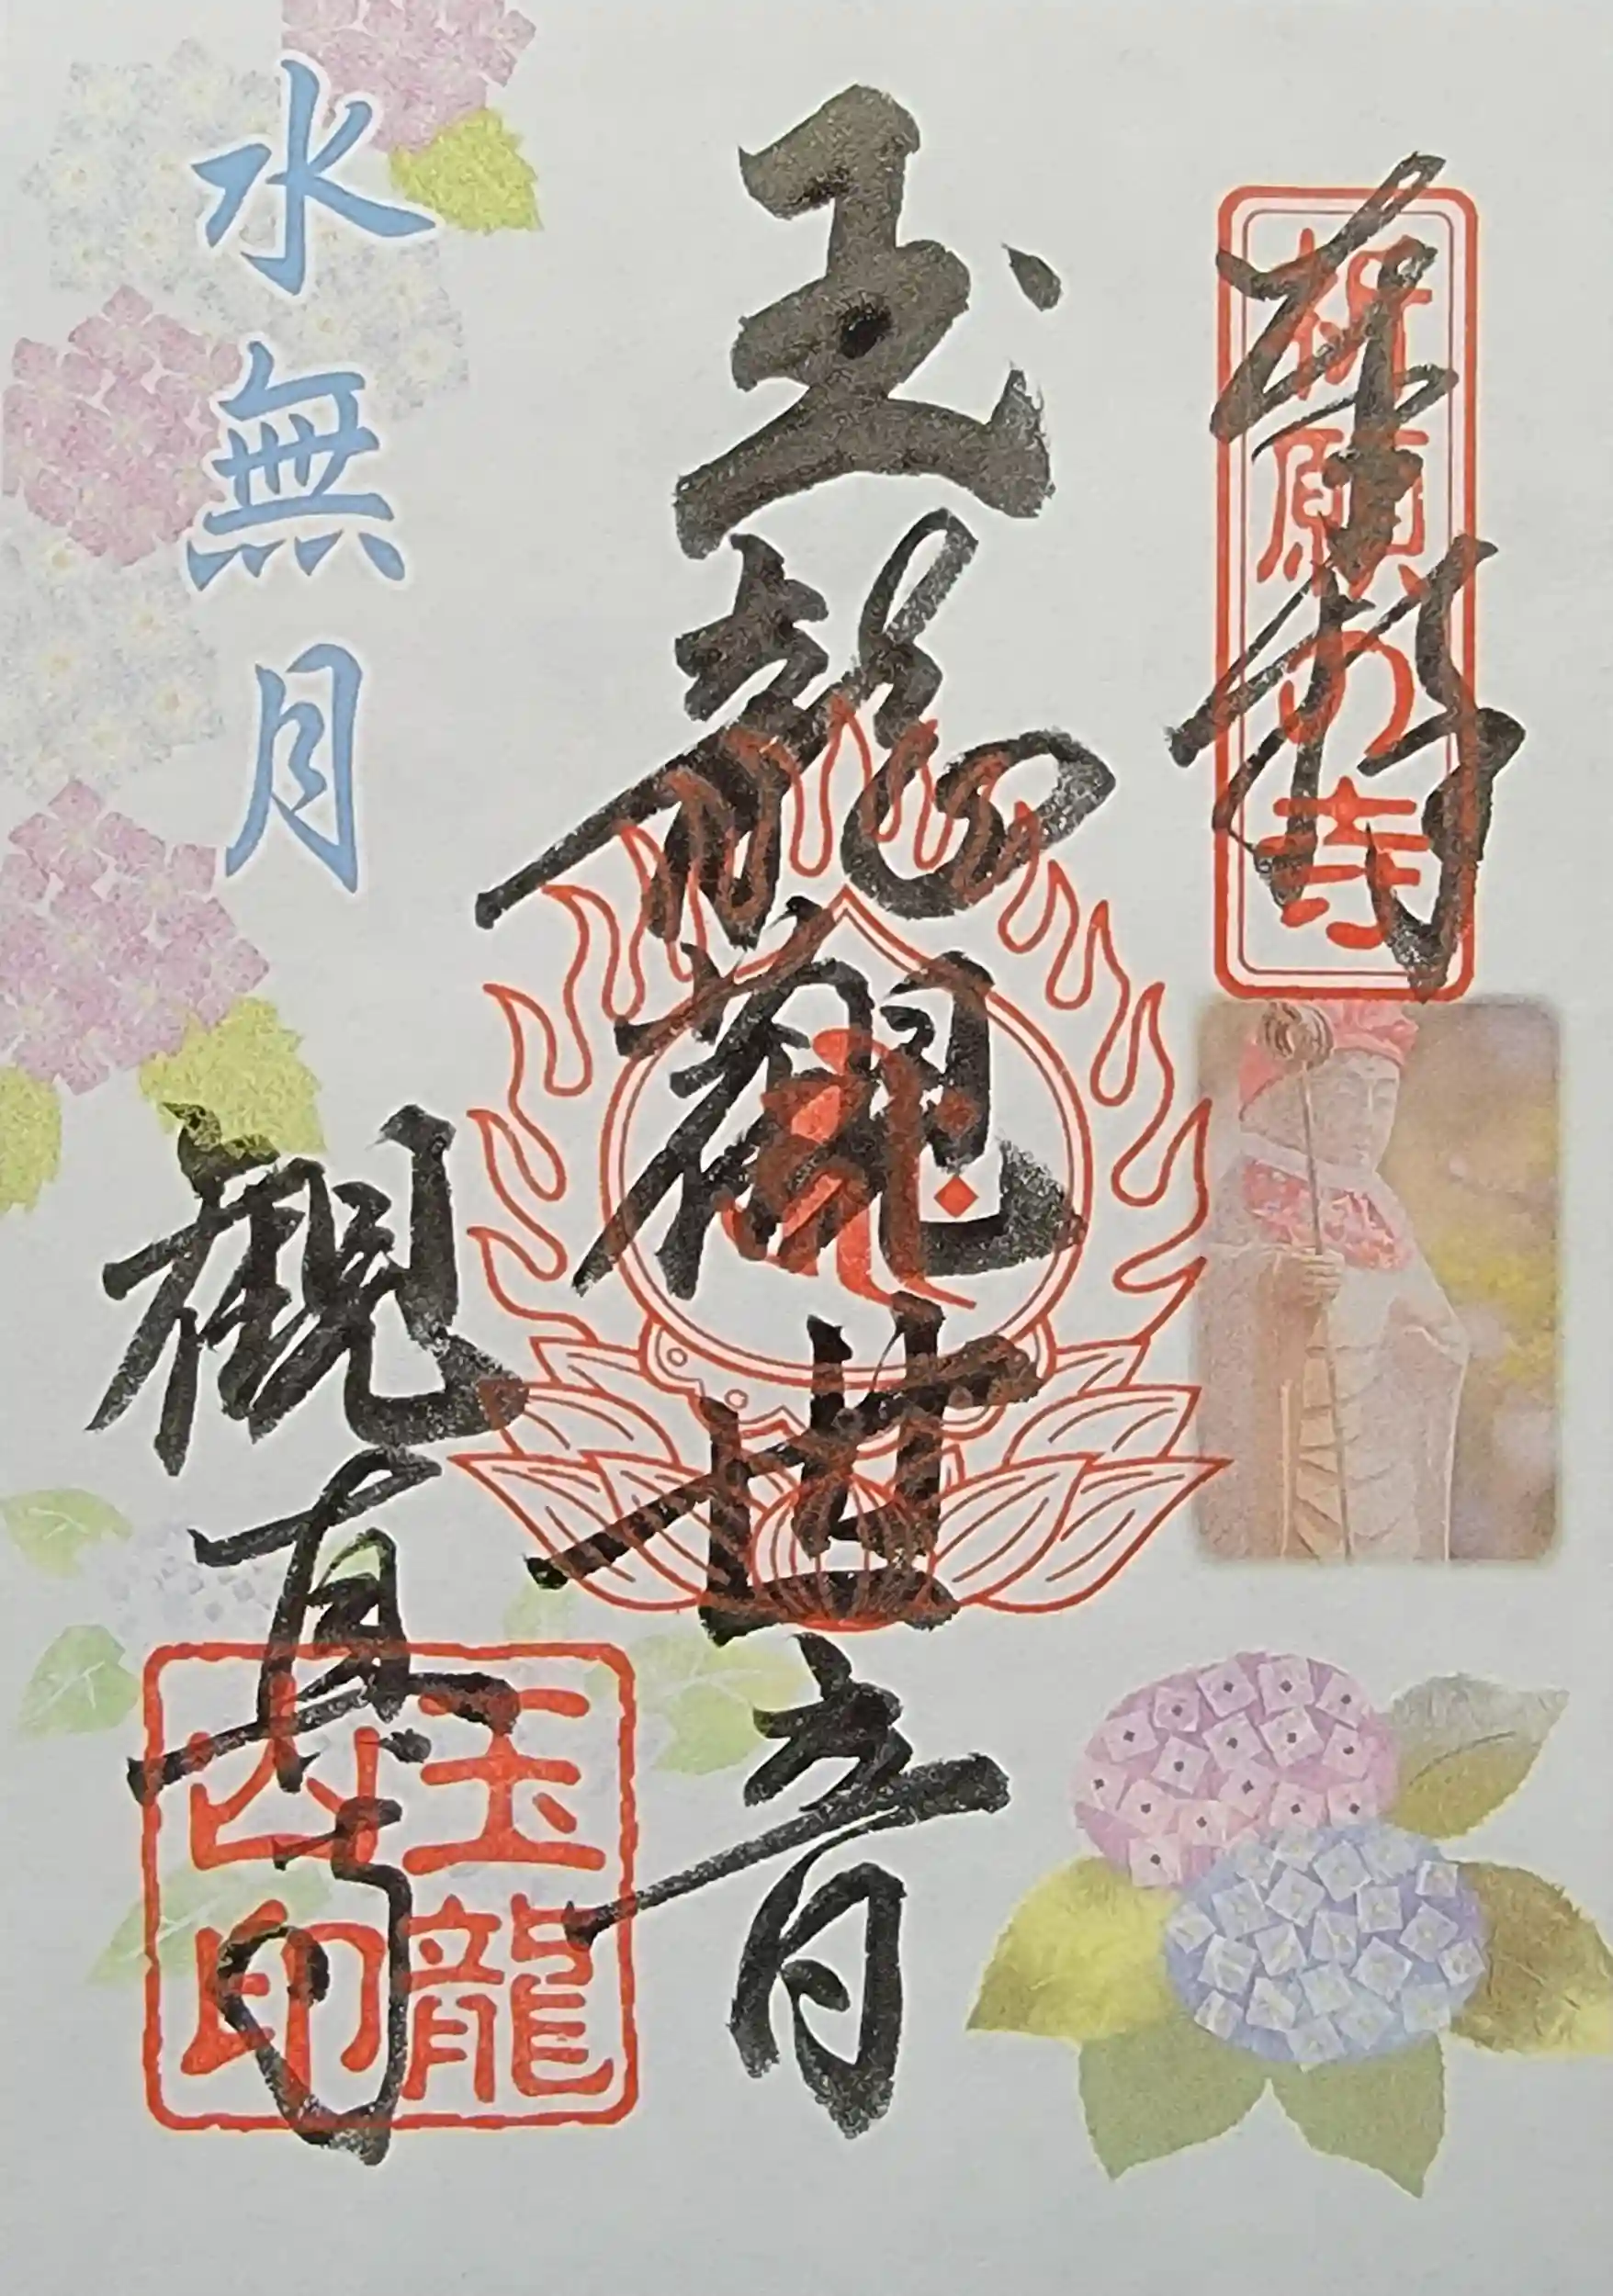 奉拝
祈願の寺
玉龍観世音
水無月
観音寺
玉龍
山印